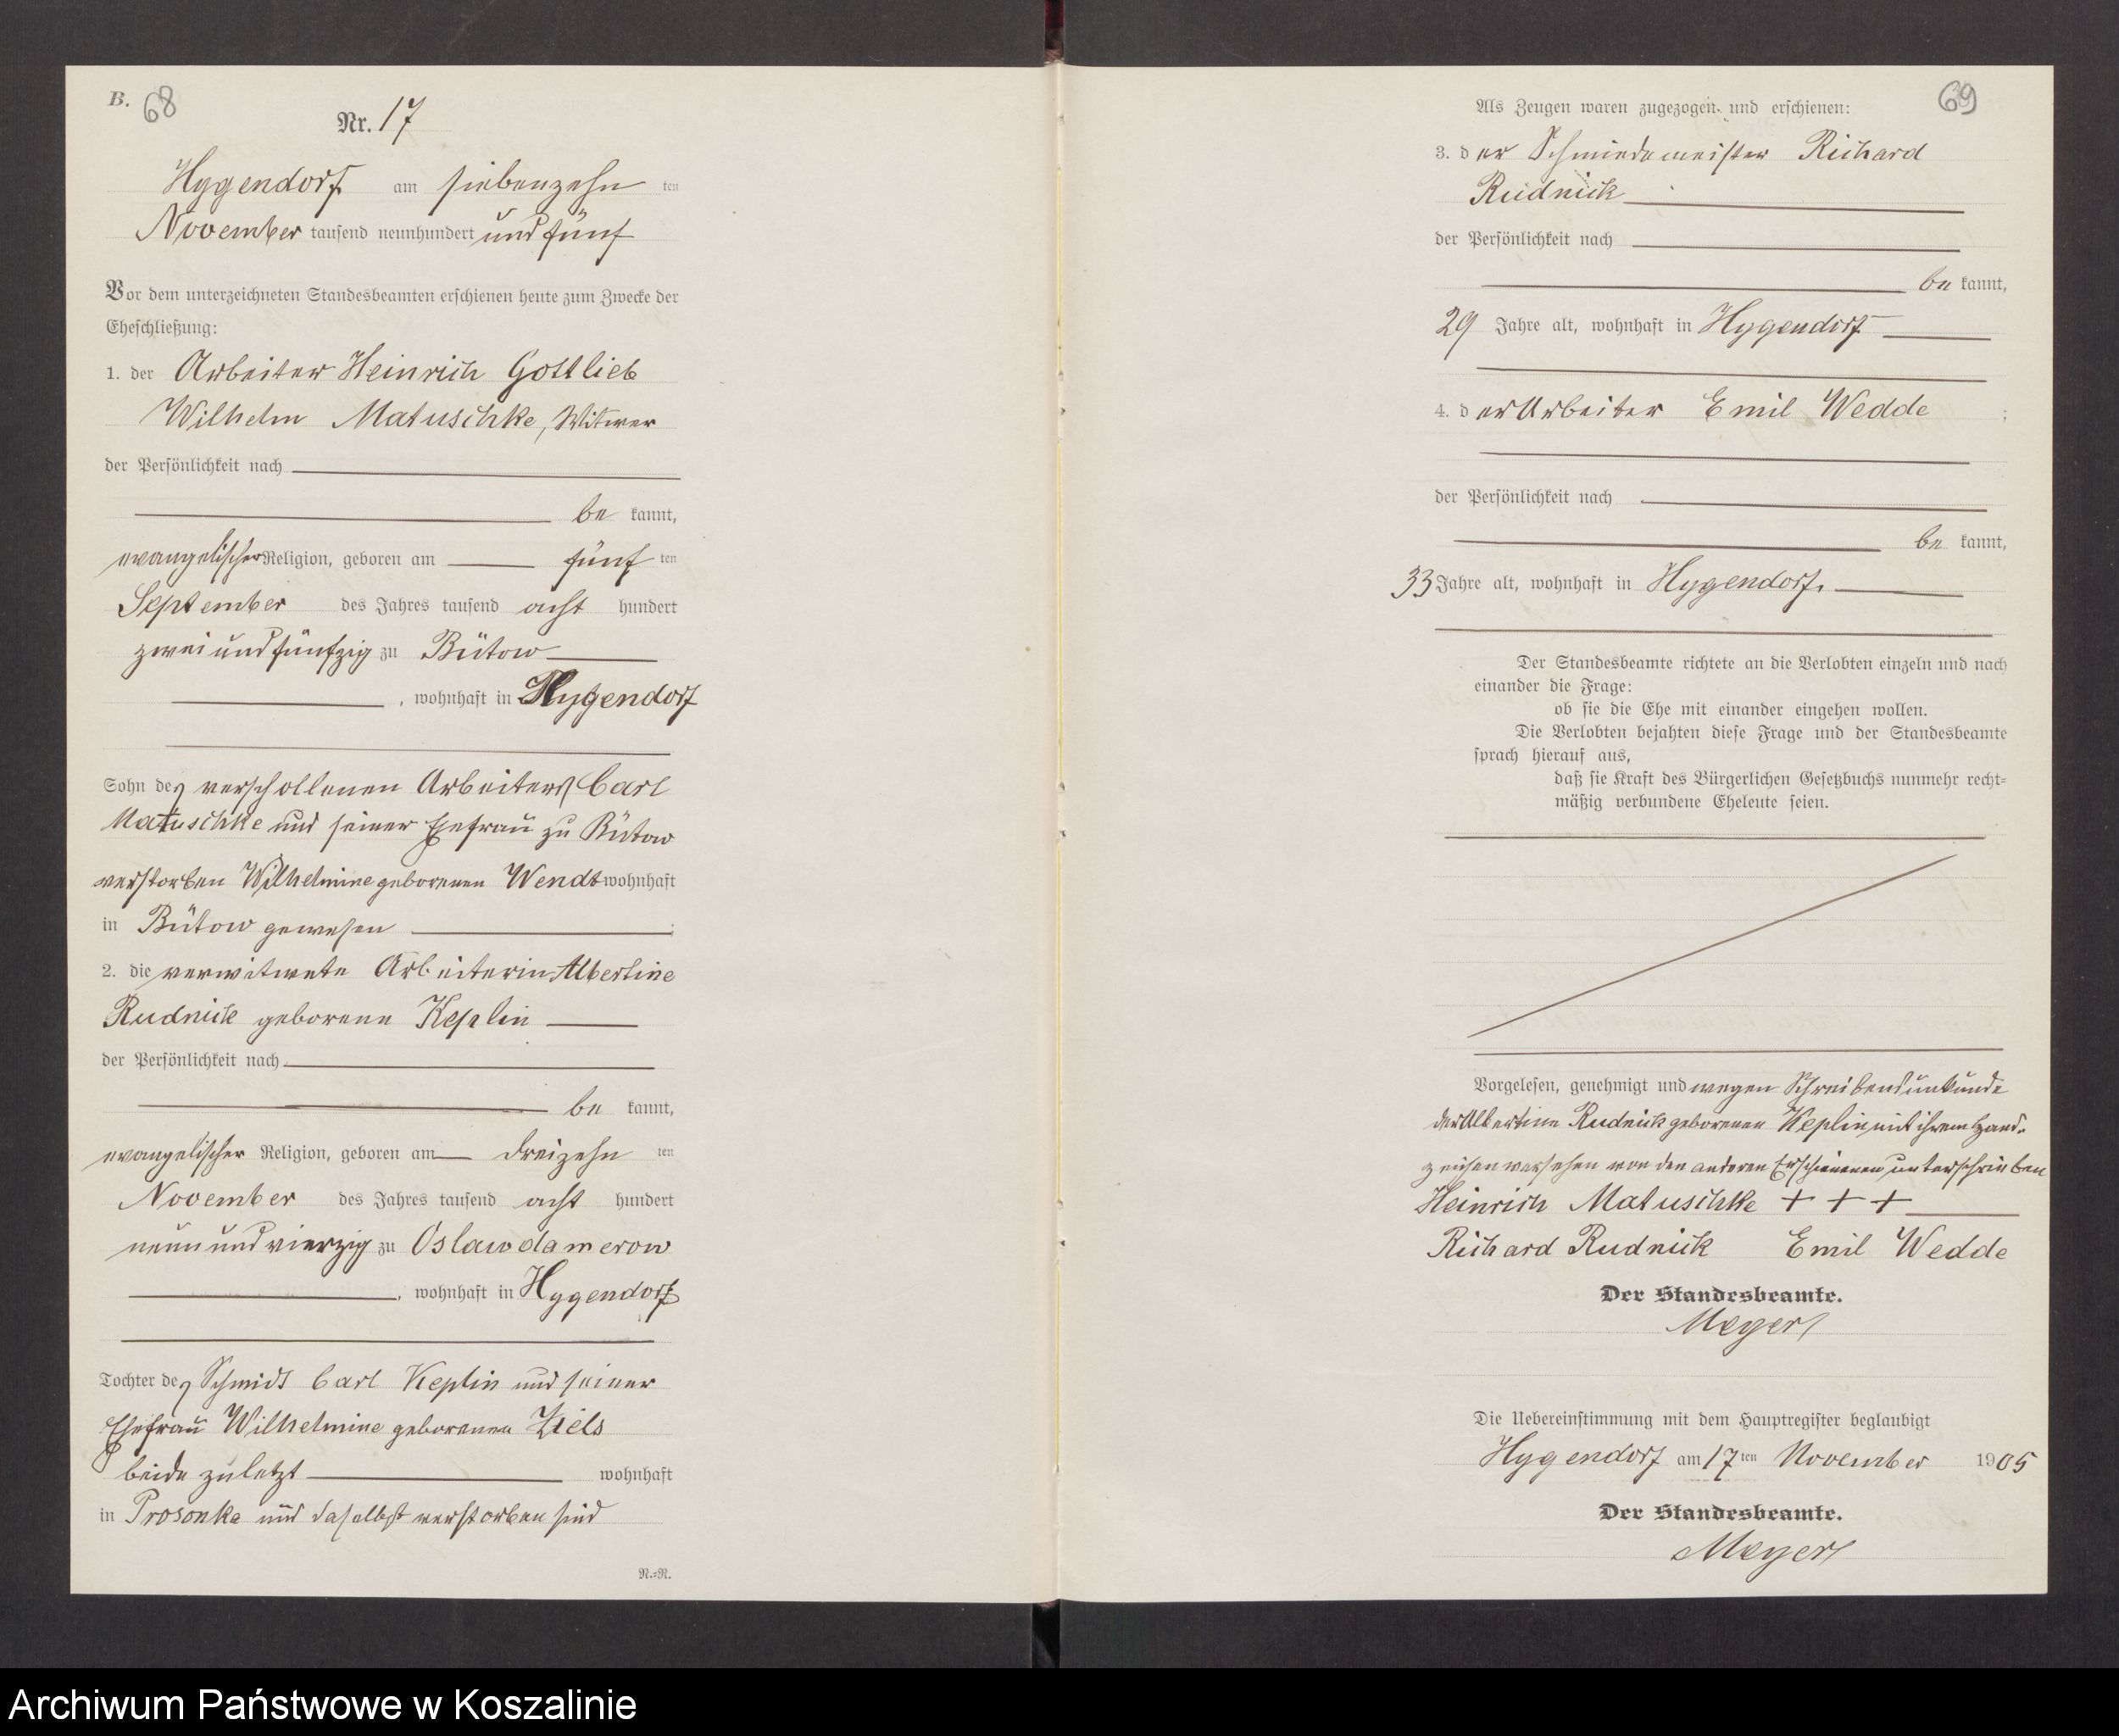 B. 68
Nr. 17
Hygendorf am siebenzehn ten
November tausend neunhundert und fünf
Vor dem unterzeichneten Standesbeamten erschienen heute zum Zwecke der
Eheschließung:
1. der Arbeiter Heinrich Gottlieb
Wilhelm Matuschke, Witwer
der Persönlichkeit nach
be kannt,
evangelischer Religion, geboren am fünf ten
September des Jahres tausend acht hundert
zwei und fünfzig zu Bütow
, wohnhaft in Hygendorf
Sohn des verschollenen Arbeiters Carl
Matuschke und seiner Ehefrau zu Bütow
verstorben Wilhelmine geborenen Wendt wohnhaft
in Bütow gewesen ;
2. die verwitwete Arbeiterin Albertine
Rudnick geborene Keplin
der Persönlichkeit nach
be kannt,
evangelischer Religion, geboren am dreizehn ten
November des Jahres tausend acht hundert
neun und vierzig zu Oslawdamerow
, wohnhaft in Hygendorf
Tochter des Schmidt Carl Keplin und seiner
Ehefrau Wilhelmine geborenen Ziels
beide zuletzt wohnhaft
in Prosonke und daselbst verstorben sind
R.=R.
69
Als Zeugen waren zugezogen und erschienen:
3. der Schmiedemeister Richard
Rudnick
der Persönlichkeit nach
be kannt,
29 Jahre alt, wohnhaft in Hygendorf
4. der Arbeiter Emil Wedde ;
der Persönlichkeit nach
be kannt,
33 Jahre alt, wohnhaft in Hygendorf.
Der Standesbeamte richtete an die Verlobten einzeln und nach
einander die Frage:
ob sie die Ehe mit einander eingehen wollen.
Die Verlobten bejahten diese Frage und der Standesbeamte
sprach hierauf aus,
daß sie Kraft des Bürgerlichen Gesetzbuchs nunmehr recht=
mäßig verbundene Eheleute seien.
Vorgelesen, genehmigt und wegen Schreibensunkunde
der Albertine Rudnick geborenen Keplin mit ihrem Hand-
zeichen versehen von den anderen Erschienenen unterschrieben
Heinrich Matuschke + + +
Richard Rudnick Emil Wedde
Der Standesbeamte.
Meyer
Die Uebereinstimmung mit dem Hauptregister beglaubigt
Hygendorf am 17 ten November 1905
Der Standesbeamte.
Meyer
Archiwum Państwowe w Koszalinie